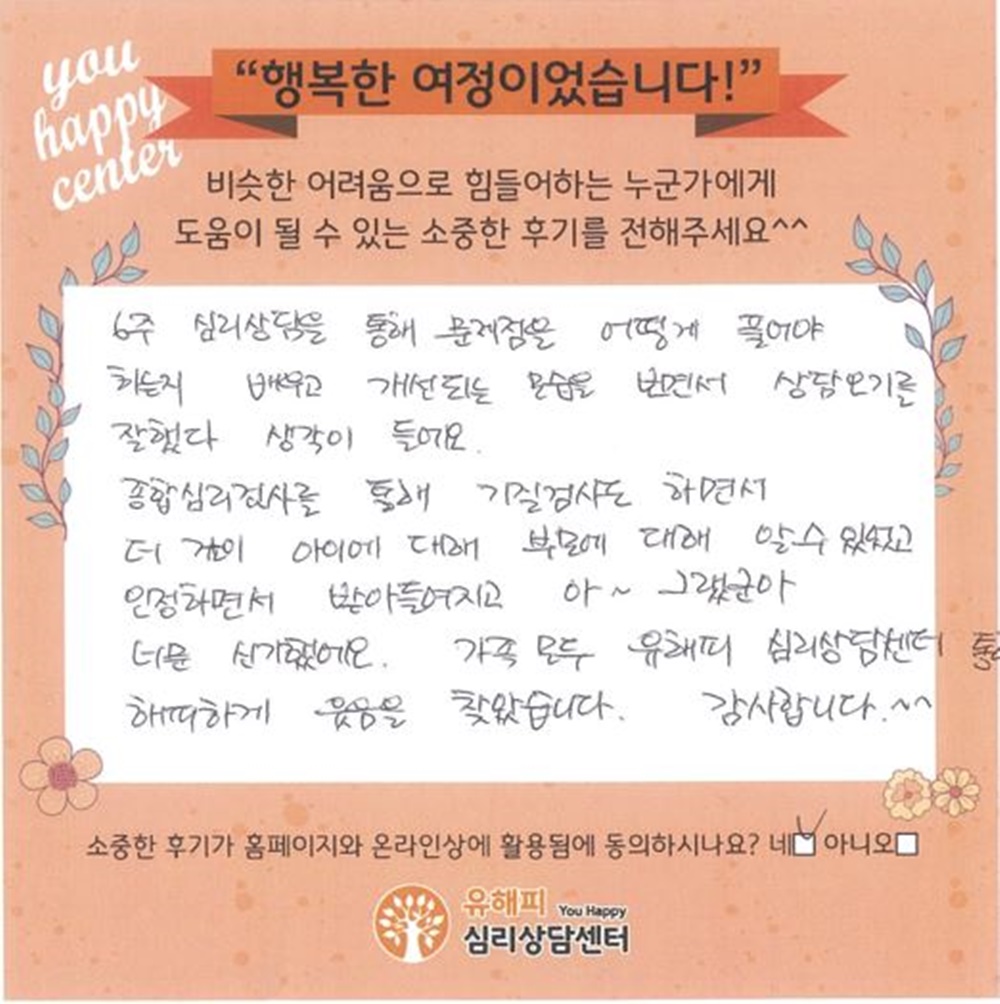 you
happy
center
“행복한 여정이었습니다!”
비슷한 어려움으로 힘들어하는 누군가에게
도움이 될 수 있는 소중한 후기를 전해주세요^^
6주 심리상담을 통해 문제점을 어떻게 풀어야
하는지 배우고 개선되는 모습을 보면서 상담오기를
잘했다 생각이 들어요.
종합심리검사를 통해 기질검사도 하면서
더 깊이 아이에 대해 부모에 대해 알수 있었고
인정하면서 받아들여지고 아~ 그랬군아
너무 신기했어요. 가족 모두 유해피 심리상담센터
해피하게 웃음을 찾았습니다. 감사합니다.^^
소중한 후기가 홈페이지와 온라인상에 활용됨에 동의하시나요? 네 아니오
유해피 You Happy
심리상담센터